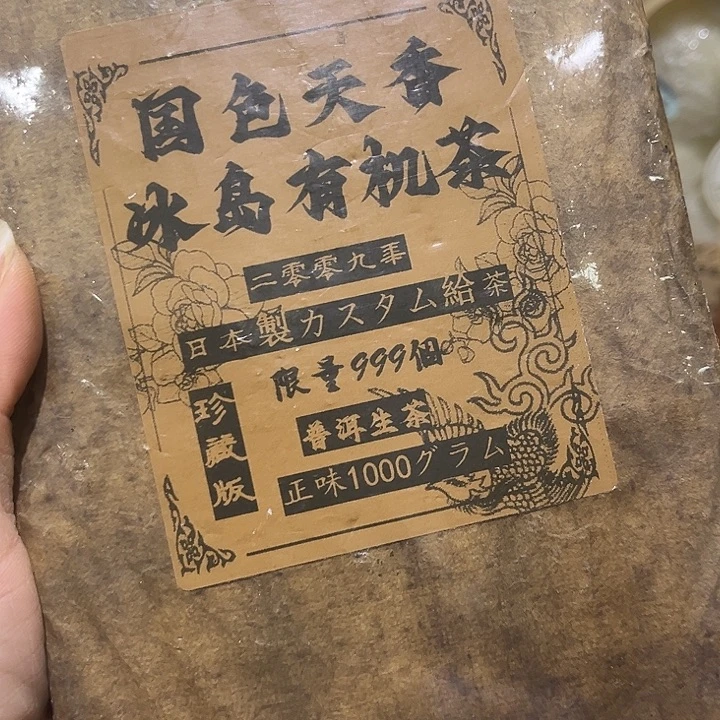 国色天香
冰島有机茶
二零零九年
日本製カスタム給茶
限量999個
珍藏版
普洱生茶
正味1000グラム